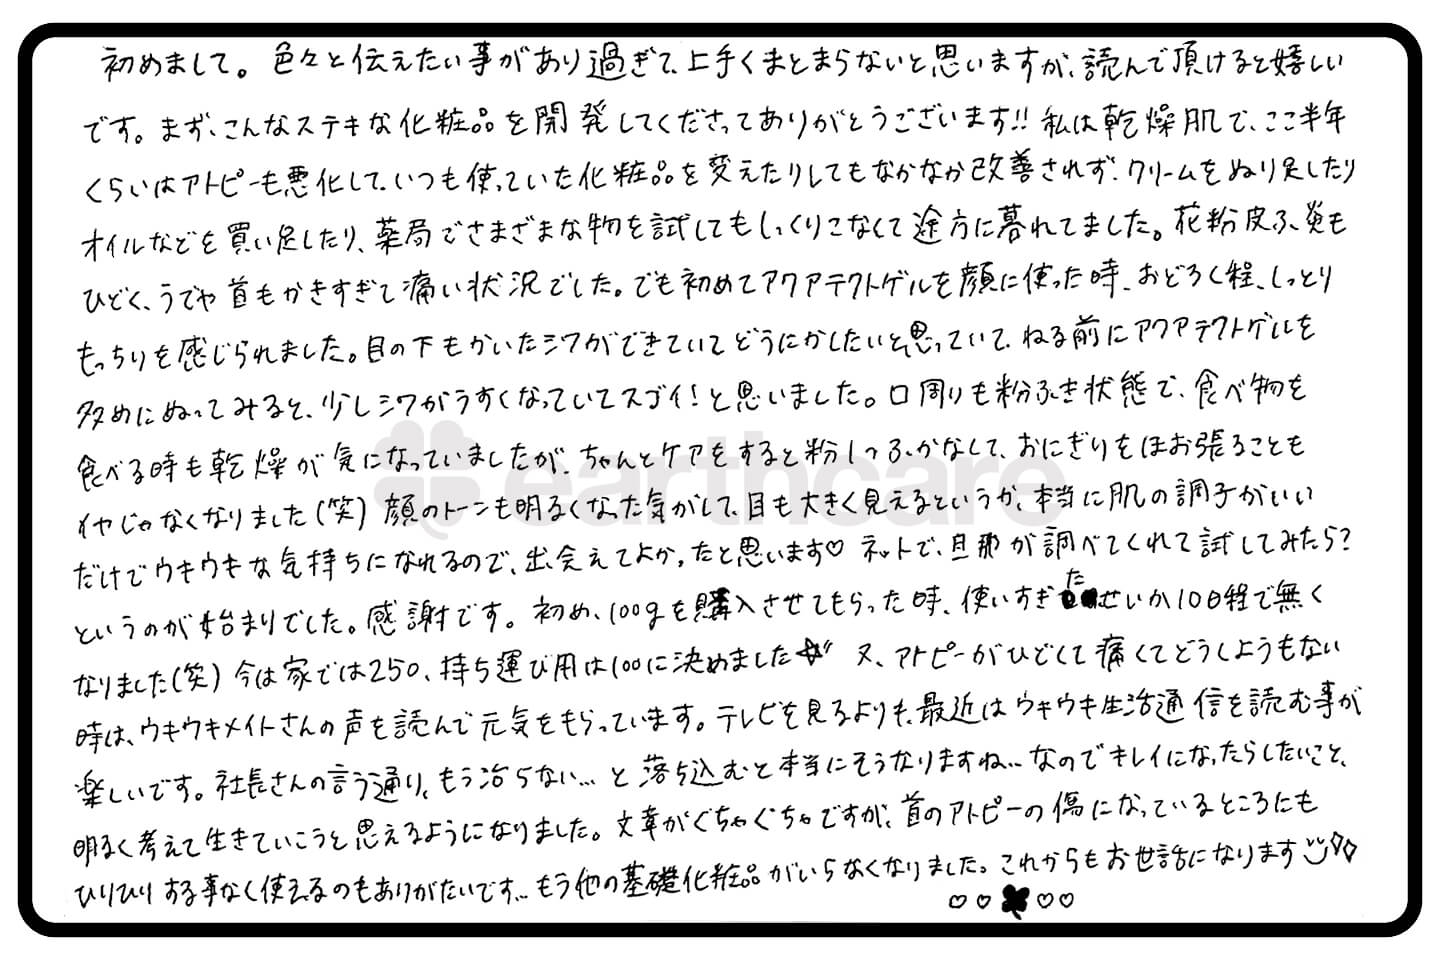 初めまして。色々と伝えたい事があり過ぎて、上手くまとまらないと思いますが、読んで頂けると嬉しい
です。まず、こんなステキな化粧品を開発してくださってありがとうございます!! 私は乾燥肌で、ここ半年
くらいはアトピーも悪化して、いつも使っていた化粧品を変えたりしてもなかなか改善されず、クリームをぬり足したり
オイルなどを買い足したり、薬局でさまざまな物を試してもしっくりこなくて途方に暮れてました。花粉皮ふ炎も
ひどく、うでや首もかきすぎて痛い状況でした。でも初めてアクアテクトゲルを顔に使った時、おどろく程、しっとり
もっちりを感じられました。目の下もかいたシワができていてどうにかしたいと思っていて、ねる前にアクアテクトゲルを
多めにぬってみると、少しシワがうすくなっていてスゴイ!と思いました。口周りも粉ふき状態で、食べ物を
食べる時も乾燥が気になっていましたが、ちゃんとケアをすると粉しっふかなして、おにぎりをほお張ることも
イヤじゃなくなりました(笑) 顔のトーンも明るくなった気がして、目も大きく見えるというか、本当に肌の調子がいい
だけでウキウキな気持ちになれるので、出会えてよかったと思います♡ ネットで、旦那が調べてくれて試してみたら?
というのが始まりでした。感謝です。初め、100gを購入させてもらった時、使いすぎたせいか10日程で無く
なりました(笑) 今は家では250、持ち運び用は100に決めました☆ 又、アトピーがひどくて痛くてどうしようもない
時は、ウキウキメイトさんの声を読んで元気をもらっています。テレビを見るよりも、最近はウキウキ生活通信を読む事が
楽しいです。社長さんの言う通り、もう治らない…と落ち込むと本当にそうなりますね…なのでキレイになったらしたいこと、
明るく考えて生きていこうと思えるようになりました。文章がぐちゃぐちゃですが、首のアトピーの傷になっているところにも
ひりひりする事なく使えるのもありがたいです…もう他の基礎化粧品がいらなくなりました。これからもお世話になります
♡♡♣♡♡
earthcare